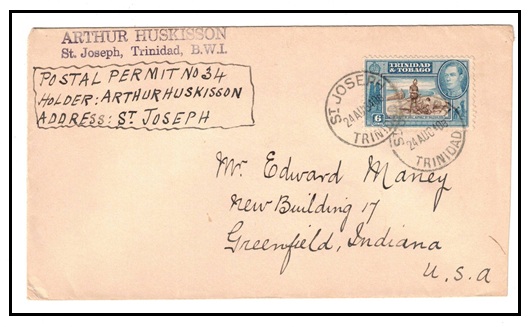 ARTHUR HUSKISSON
St. Joseph, Trinidad, B.W.I.
POSTAL PERMIT NO 34
HOLDER: ARTHUR HUSKISSON
ADDRESS: ST JOSEPH
TRINIDAD
& TOBAGO
6
ST JOSEPH
24 AUG
TRINIDAD
24 AUG
TRINIDAD
Mr. Edward Maney
New Building 17
Greenfield, Indiana
U.S.a